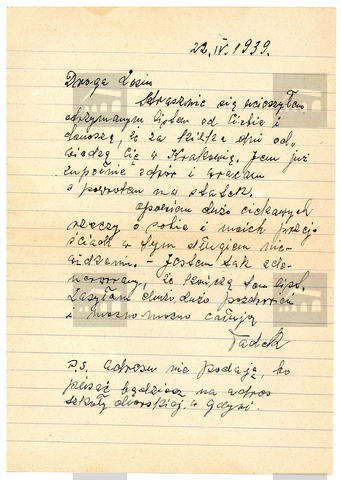 22.IV.1939.
Droga Losiu
Strasznie się ucieszyłem
otrzymanym listem od Ciebie i
donoszę, że za kilka dni od-
wiedzę Cię w Krakowie. Jem już
zupełnie zdrów i wracam
z powrotem na statek.
Opowiem dużo ciekawych
rzeczy o sobie i moich przej-
ściach w tym długiem nie-
widzeniu. - Jestem tak zde-
nerwowany, że kończę ten list.
Zasyłam dużo, dużo pozdrowień
i mocno mocno całuję
Tadek
P.S. adresu nie podaję, bo
pisać będziesz na adres
szkoły morskiej w Gdyni.